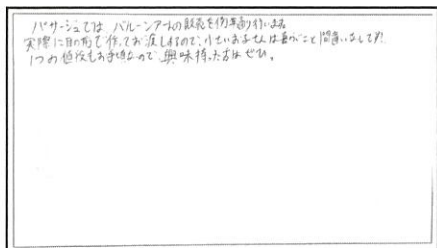 パサージュでは バルーンアートの販売を例年通り行います。
実際に目の前で作ってお渡しするので、小さいお子さんは喜ぶこと間違いなしです!
1つの値段もお手頃なので 興味持った方はぜひ。